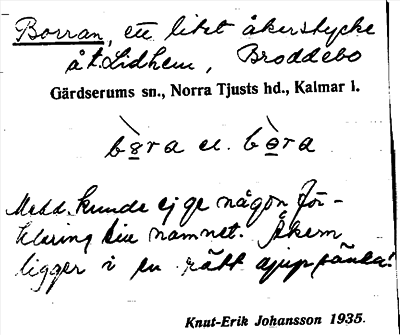 Borran, ett litet åkerstycke
å t. Lidhem, Broddebo
Gärdserums sn., Norra Tjusts hd., Kalmar l.
bòra el. bòra
Medd. kunde ej ge någon för-
klaring till namnet. Åkern
ligger i en rätt djup sänka!
Knut-Erik Johansson 1935.